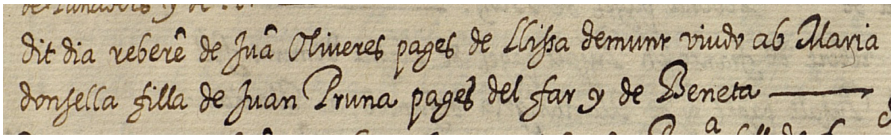 dit dia reberê de Juâ Oliveres pages de Llissa demunt viudo ab Maria
donsella filla de Juan Pruna pages del far y de Beneta